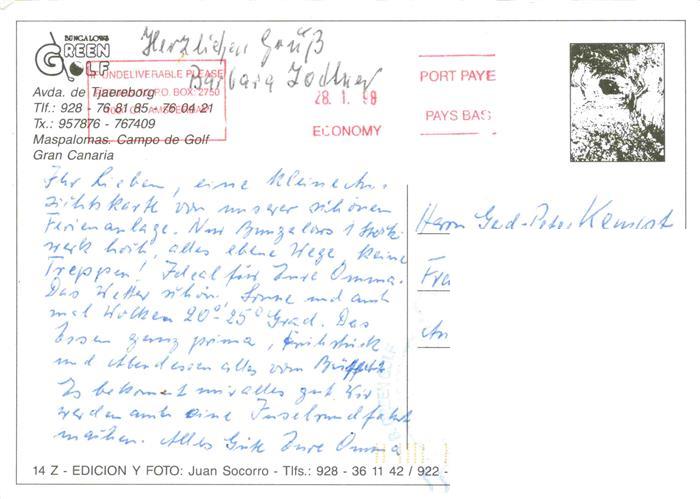 BUNGALOWS
GREEN
GOLF
Avda. de Tjaereborg
Tlf.: 928 - 76 81 85 - 76 04 21
Tx.: 957876 - 767409
Maspalomas. Campo de Golf
Gran Canaria
Herzlichen Gruß
Barbara
UNDELIVERABLE PLEASE
BOX: 2750
28. 1. 98
ECONOMY
PORT PAYE
PAYS BAS
Ihr Lieben, eine kleine An-
sichtskarte von unserer schönen
Ferienanlage. Nur Bungalows 1 Stock-
werk hoch, alles ebene Wege, keine
Treppen! Ideal für Eure Omma.
Das Wetter schön, Sonne und auch
mal Wolken 20°-25° Grad. Das
Essen ganz prima, Frühstück
und Abendessen alles vom Büffett
Es bekommt mir alles gut. Wir
werden auch eine Inselrundfahrt
machen. Alles Gute Eure Omma
Herrn Gerd-Peter
14 Z - EDICION Y FOTO: Juan Socorro - Tlfs.: 928 - 36 11 42 / 922 -